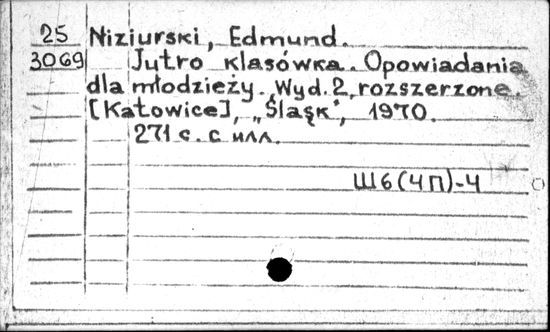 25 Niziurski, Edmund.
3069 Jutro klasówka. Opowiadania
dla młodzieży. Wyd. 2, rozszerzone.
[Katowice], „Śląsk", 1970.
271 с. с илл.
Ш6(4П)-4